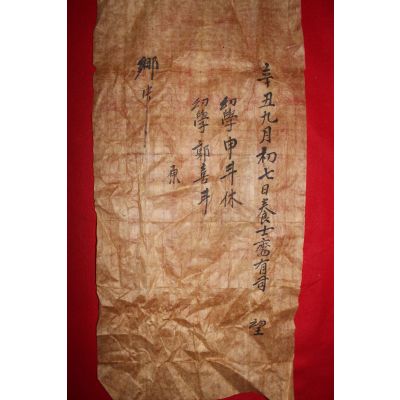 辛丑九月初七日養士齋有司 望
幼學 申斗休
幼學 郭喜斗
原
鄕中